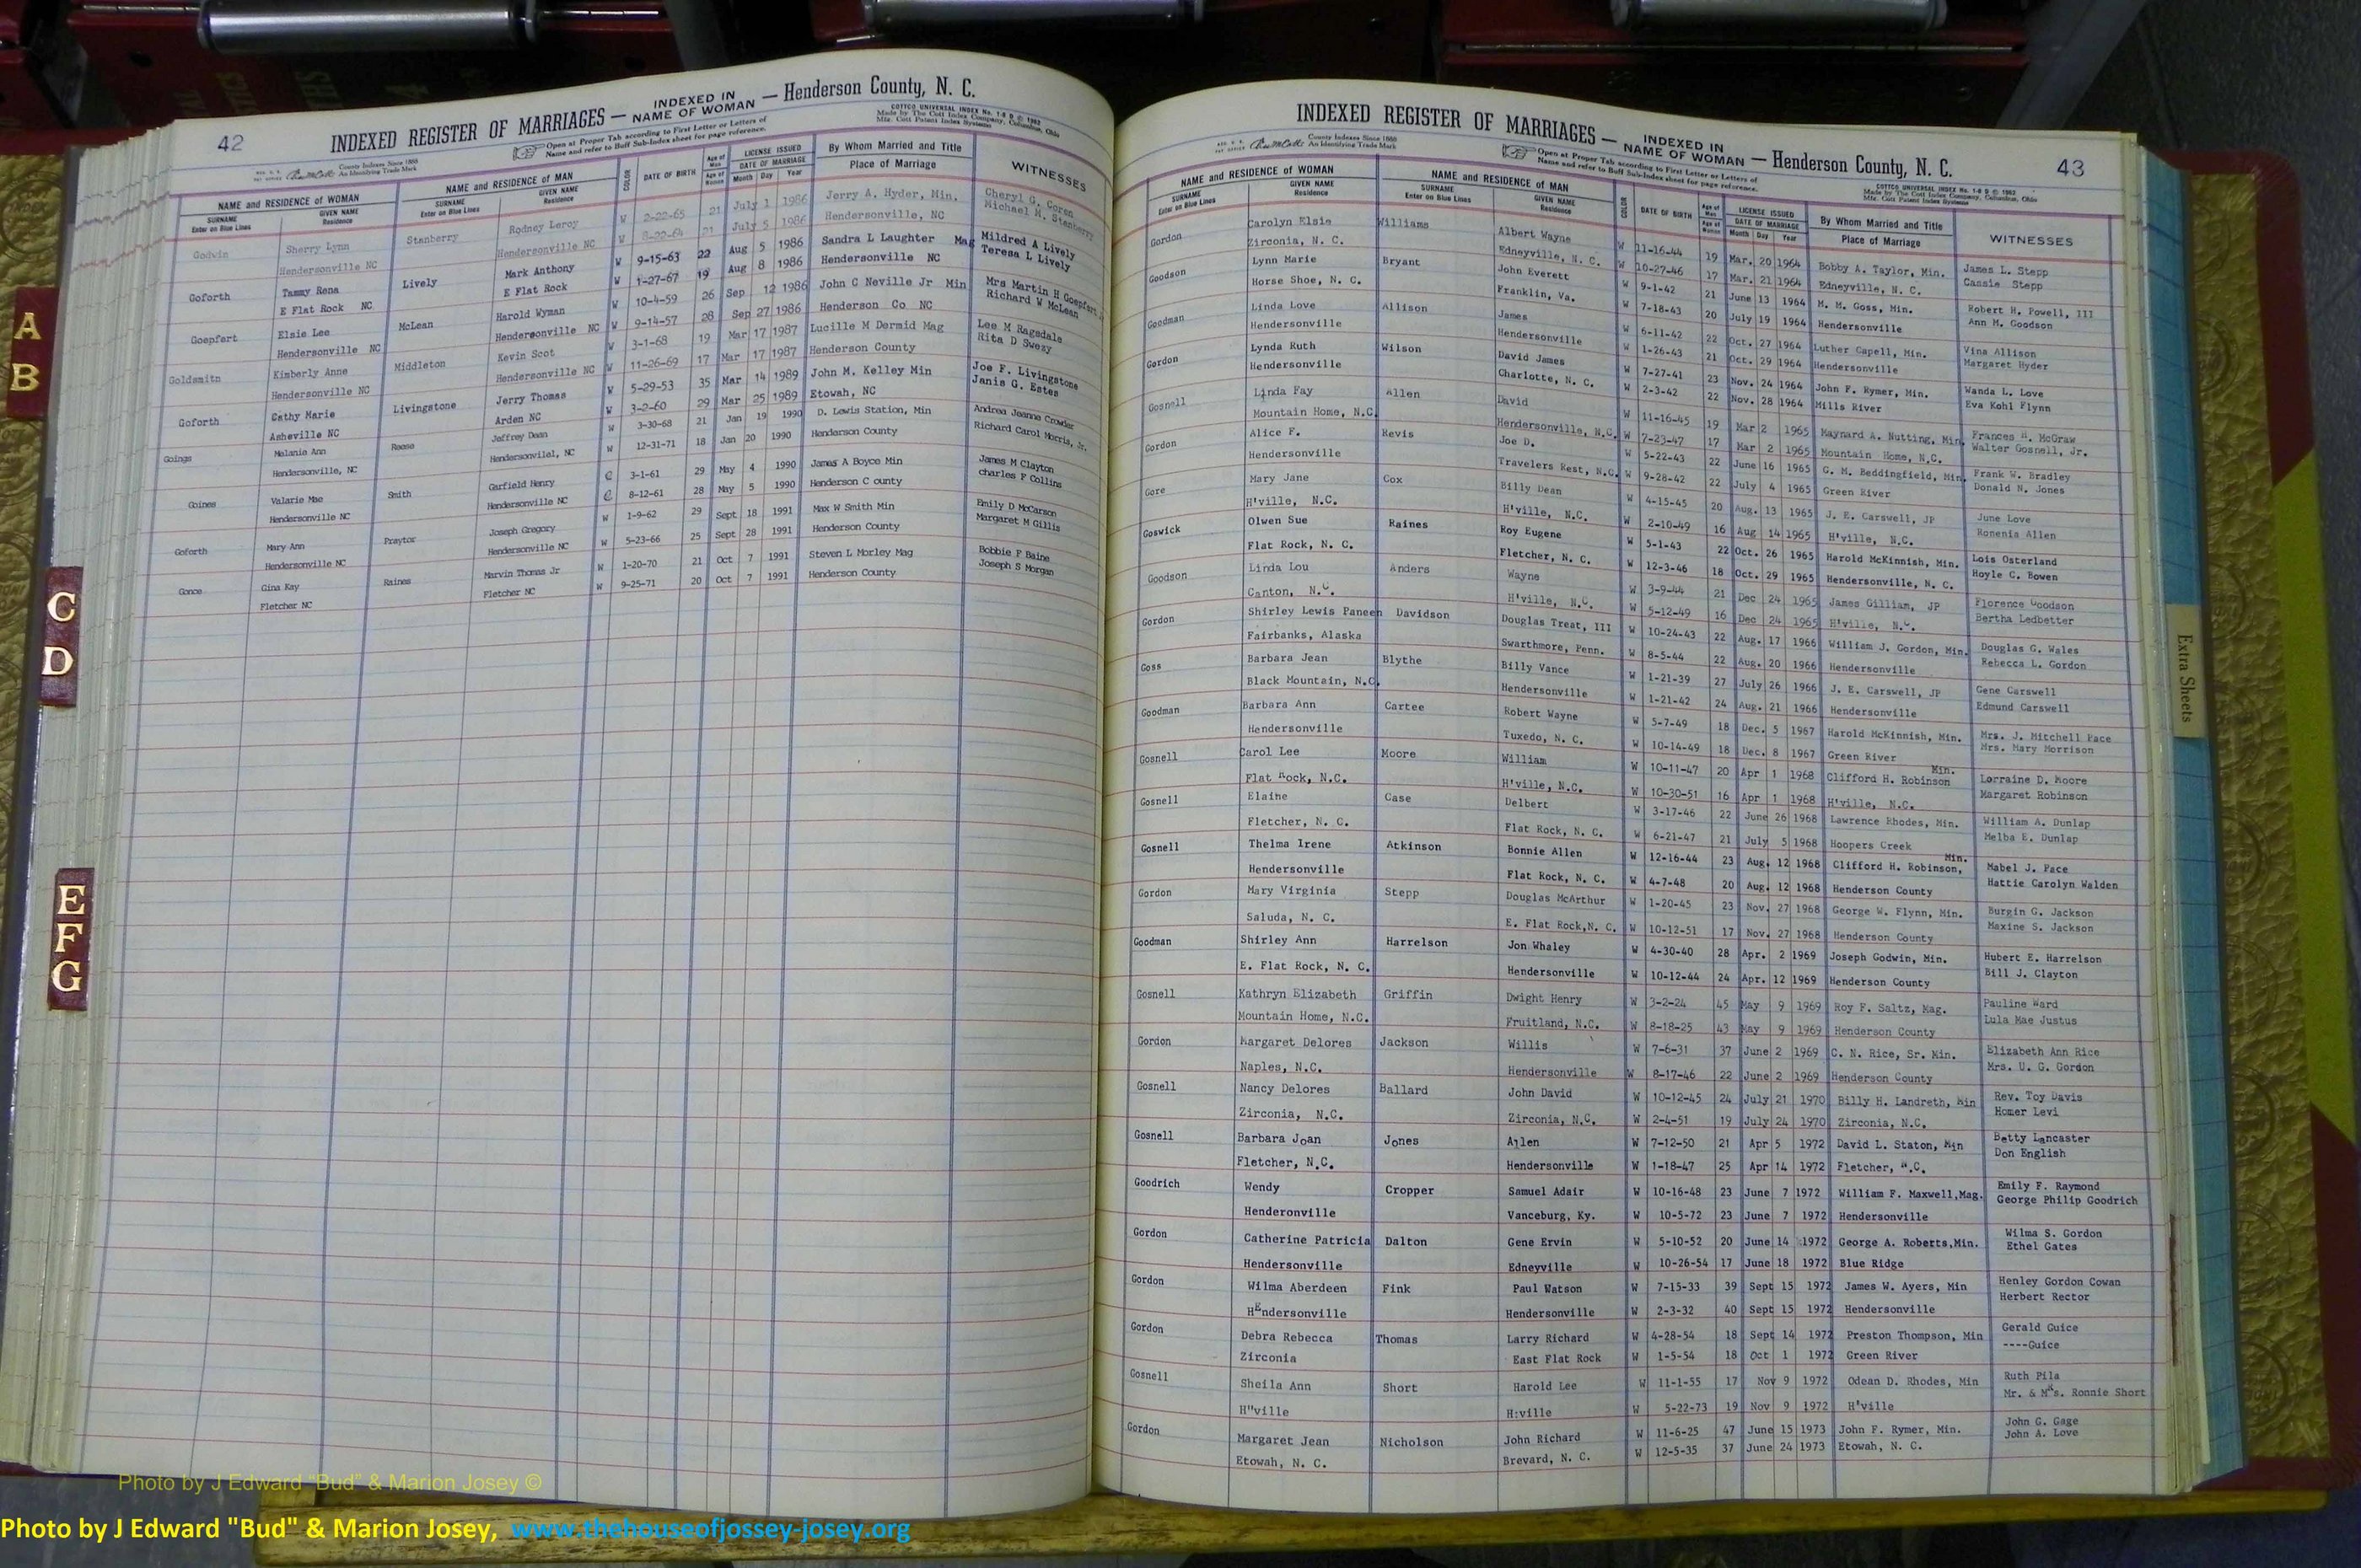 42
INDEXED REGISTER OF MARRIAGES — INDEXED IN NAME OF WOMAN — Henderson County, N. C.
County Indexes Since 1888
An Identifying Trade Mark
Open at Proper Tab according to First Letter or Letters of
Name and refer to Buff Sub-Index sheet for page reference.
COTTCO UNIVERSAL INDEX No. 1-8 D © 1962
Made by The Cott Index Company, Columbus, Ohio
Mfrs. Cott Patent Index Systems
NAME and RESIDENCE of WOMAN NAME and RESIDENCE OF MAN COLOR DATE OF BIRTH Age of Man LICENSE ISSUED By Whom Married and Title WITNESSES
SURNAME GIVEN NAME SURNAME GIVEN NAME Age of Woman DATE OF MARRIAGE Place of Marriage
Enter on Blue Lines Residence Enter on Blue Lines Residence Month Day Year
Godwin Sherry Lynn Stanberry Rodney Leroy W 2-22-65 21 July 1 1986 Jerry A. Hyder, Min. Cheryl G. Goren
Hendersonville NC Hendersonville NC W 8-22-64 21 July 5 1986 Hendersonville, NC Michael M. Stanberry
Goforth Tammy Rena Lively Mark Anthony W 9-15-63 22 Aug 5 1986 Sandra L Laughter Mag Mildred A Lively
E Flat Rock NC E Flat Rock W 1-27-67 19 Aug 8 1986 Hendersonville NC Teresa L Lively
Goepfert Elsie Lee McLean Harold Wyman W 10-4-59 26 Sep 12 1986 John C Neville Jr Min Mrs Martin H Goepfert
Hendersonville NC Hendersonville NC W 9-14-57 28 Sep 27 1986 Henderson Co NC Richard W McLean
Goldsmitn Kimberly Anne Middleton Kevin Scot W 3-1-68 19 Mar 17 1987 Lucille M Dermid Mag Lee M Ragsdale
Hendersonville NC Hendersonville NC W 11-26-69 17 Mar 17 1987 Henderson County Rita D Swezy
Goforth Cathy Marie Livingstone Jerry Thomas W 5-29-53 35 Mar 14 1989 John M. Kelley Min Joe F. Livingstone
Asheville NC Arden NC W 3-2-60 29 Mar 25 1989 Etowah, NC Janis G. Estes
Goings Melanie Ann Reese Jeffrey Dean W 3-30-68 21 Jan 19 1990 D. Lewis Station, Min Andrea Jeanne Crowder
Hendersonville, NC Hendersonvilel, NC W 12-31-71 18 Jan 20 1990 Henderson County Richard Carol Morris, Jr.
Goines Valarie Mae Smith Garfield Henry C 3-1-61 29 May 4 1990 James A Boyce Min James M Clayton
Hendersonville NC Hendersonville NC C 8-12-61 28 May 5 1990 Henderson C ounty charles F Collins
Goforth Mary Ann Praytor Joseph Gregory W 1-9-62 29 Sept 18 1991 Max W Smith Min Emily D McCarson
Hendersonville NC Hendersonville NC W 5-23-66 25 Sept 28 1991 Henderson County Margaret M Gillis
Gonce Gina Kay Raines Marvin Thomas Jr W 1-20-70 21 Oct 7 1991 Steven L Morley Mag Bobbie F Baine
Fletcher NC Fletcher NC W 9-25-71 20 Oct 7 1991 Henderson County Joseph S Morgan
A
B
C
D
E
F
G
43
INDEXED REGISTER OF MARRIAGES — INDEXED IN NAME OF WOMAN — Henderson County, N. C.
County Indexes Since 1888
An Identifying Trade Mark
Open at Proper Tab according to First Letter or Letters of
Name and refer to Buff Sub-Index sheet for page reference.
COTTCO UNIVERSAL INDEX No. 1-8 D © 1962
Made by The Cott Index Company, Columbus, Ohio
Mfrs. Cott Patent Index Systems
NAME and RESIDENCE OF WOMAN NAME and RESIDENCE OF MAN COLOR DATE OF BIRTH Age of Man LICENSE ISSUED By Whom Married and Title WITNESSES
SURNAME GIVEN NAME SURNAME GIVEN NAME Age of Woman DATE OF MARRIAGE Place of Marriage
Enter on Blue Lines Residence Enter on Blue Lines Residence Month Day Year
Gordon Carolyn Elsie Williams Albert Wayne W 11-16-44 19 Mar. 20 1964 Bobby A. Taylor, Min. James L. Stepp
Zirconia, N. C. Edneyville, N. C. W 10-27-46 17 Mar. 21 1964 Edneyville, N. C. Cassie Stepp
Goodson Lynn Marie Bryant John Everett W 9-1-42 21 June 13 1964 M. M. Goss, Min. Robert H. Powell, III
Horse Shoe, N. C. Franklin, Va. W 7-18-43 20 July 19 1964 Hendersonville Ann M. Goodson
Goodman Linda Love Allison James W 6-11-42 22 Oct. 27 1964 Luther Capell, Min. Vina Allison
Hendersonville Hendersonville W 1-26-43 21 Oct. 29 1964 Hendersonville Margaret Hyder
Gordon Lynda Ruth Wilson David James W 7-27-41 23 Nov. 24 1964 John F. Rymer, Min. Wanda L. Love
Hendersonville Charlotte, N. C. W 2-3-42 22 Nov. 28 1964 Mills River Eva Kohl Flynn
Gosnell Linda Fay Allen David W 11-16-45 19 Mar 2 1965 Maynard A. Nutting, Min. Frances H. McGraw
Mountain Home, N.C. Hendersonville, N.C. W 7-23-47 17 Mar 2 1965 Mountain Home, N.C. Walter Gosnell, Jr.
Gordon Alice F. Revis Joe D. W 5-22-43 22 June 16 1965 G. M. Beddingfield, Min. Frank W. Bradley
Hendersonville Travelers Rest, N.C. W 9-28-42 22 July 4 1965 Green River Donald N. Jones
Gore Mary Jane Cox Billy Dean W 4-15-45 20 Aug. 13 1965 J. E. Carswell, JP June Love
H'ville, N.C. H'ville, N.C. W 2-10-49 16 Aug 14 1965 H'ville, N.C. Ronenia Allen
Goswick Olwen Sue Raines Roy Eugene W 5-1-43 22 Oct. 26 1965 Harold McKinnish, Min. Lois Osterland
Flat Rock, N. C. Fletcher, N. C. W 12-3-46 18 Oct. 29 1965 Hendersonville, N. C. Hoyle C. Bowen
Goodson Linda Lou Anders Wayne W 3-9-44 21 Dec 24 1965 James Gilliam, JP Florence Goodson
Canton, N.C. H'ville, N.C. W 5-12-49 16 Dec 24 1965 H'ville, N.C. Bertha Ledbetter
Gordon Shirley Lewis Paneen Davidson Douglas Treat, III W 10-24-43 22 Aug. 17 1966 William J. Gordon, Min. Douglas G. Wales
Fairbanks, Alaska Swarthmore, Penn. W 8-5-44 22 Aug. 20 1966 Hendersonville Rebecca L. Gordon
Goss Barbara Jean Blythe Billy Vance W 1-21-39 27 July 26 1966 J. E. Carswell, JP Gene Carswell
Black Mountain, N.C. Hendersonville W 1-21-42 24 Aug. 21 1966 Hendersonville Edmund Carswell
Goodman Barbara Ann Cartee Robert Wayne W 5-7-49 18 Dec. 5 1967 Harold McKinnish, Min. Mrs. J. Mitchell Pace
Hendersonville Tuxedo, N. C. W 10-14-49 18 Dec. 8 1967 Green River Mrs. Mary Morrison
Gosnell Carol Lee Moore William W 10-11-47 20 Apr 1 1968 Clifford H. Robinson Min. Lorraine D. Moore
Flat Rock, N.C. H'ville, N.C. W 10-30-51 16 Apr 1 1968 H'ville, N.C. Margaret Robinson
Gosnell Elaine Case Delbert W 3-17-46 22 June 26 1968 Lawrence Rhodes, Min. William A. Dunlap
Fletcher, N. C. Flat Rock, N. C. W 6-21-47 21 July 5 1968 Hoopers Creek Melba E. Dunlap
Gosnell Thelma Irene Atkinson Bonnie Allen W 12-16-44 23 Aug. 12 1968 Clifford H. Robinson, Min. Mabel J. Pace
Hendersonville Flat Rock, N. C. W 4-7-48 20 Aug. 12 1968 Henderson County Hattie Carolyn Walden
Gordon Mary Virginia Stepp Douglas McArthur W 1-20-45 23 Nov. 27 1968 George W. Flynn, Min. Burgin G. Jackson
Saluda, N. C. E. Flat Rock,N. C. W 10-12-51 17 Nov. 27 1968 Henderson County Maxine S. Jackson
Goodman Shirley Ann Harrelson Jon Whaley W 4-30-40 28 Apr. 2 1969 Joseph Godwin, Min. Hubert E. Harrelson
E. Flat Rock, N. C. Hendersonville W 10-12-44 24 Apr. 12 1969 Henderson County Bill J. Clayton
Gosnell Kathryn Elizabeth Griffin Dwight Henry W 3-2-24 45 May 9 1969 Roy F. Saltz, Mag. Pauline Ward
Mountain Home, N.C. Fruitland, N.C. W 8-18-25 43 May 9 1969 Henderson County Lula Mae Justus
Gordon Margaret Delores Jackson Willis W 7-6-31 37 June 2 1969 C. N. Rice, Sr. Min. Elizabeth Ann Rice
Naples, N.C. Hendersonville W 8-17-46 22 June 2 1969 Henderson County Mrs. U. G. Gordon
Gosnell Nancy Delores Ballard John David W 10-12-45 24 July 21 1970 Billy H. Landreth, Min Rev. Toy Davis
Zirconia, N.C. Zirconia, N.C. W 2-4-51 19 July 24 1970 Zirconia, N.C. Homer Levi
Gosnell Barbara Joan Jones Allen W 7-12-50 21 Apr 5 1972 David L. Staton, Min Betty Lancaster
Fletcher, N.C. Hendersonville W 1-18-47 25 Apr 14 1972 Fletcher, N.C. Don English
Goodrich Wendy Cropper Samuel Adair W 10-16-48 23 June 7 1972 William F. Maxwell,Mag. Emily F. Raymond
Henderonville Vanceburg, Ky. W 10-5-72 23 June 7 1972 Hendersonville George Philip Goodrich
Gordon Catherine Patricia Dalton Gene Ervin W 5-10-52 20 June 14 1972 George A. Roberts,Min. Wilma S. Gordon
Hendersonville Edneyville W 10-26-54 17 June 18 1972 Blue Ridge Ethel Gates
Gordon Wilma Aberdeen Fink Paul Watson W 7-15-33 39 Sept 15 1972 James W. Ayers, Min Henley Gordon Cowan
HEndersonville Hendersonville W 2-3-32 40 Sept 15 1972 Hendersonville Herbert Rector
Gordon Debra Rebecca Thomas Larry Richard W 4-28-54 18 Sept 14 1972 Preston Thompson, Min Gerald Guice
Zirconia East Flat Rock W 1-5-54 18 Oct 1 1972 Green River ----Guice
Gosnell Sheila Ann Short Harold Lee W 11-1-55 17 Nov 9 1972 Odean D. Rhodes, Min Ruth Pila
H"ville H:ville W 5-22-73 19 Nov 9 1972 H'ville Mr. & Mrs. Ronnie Short
Gordon Margaret Jean Nicholson John Richard W 11-6-25 47 June 15 1973 John F. Rymer, Min. John G. Gage
Etowah, N. C. Brevard, N. C. W 12-5-35 37 June 24 1973 Etowah, N. C. John A. Love
Extra Sheets
Photo by J Edward “Bud” & Marion Josey ©
Photo by J Edward "Bud" & Marion Josey, www.thehouseofjossey-josey.org